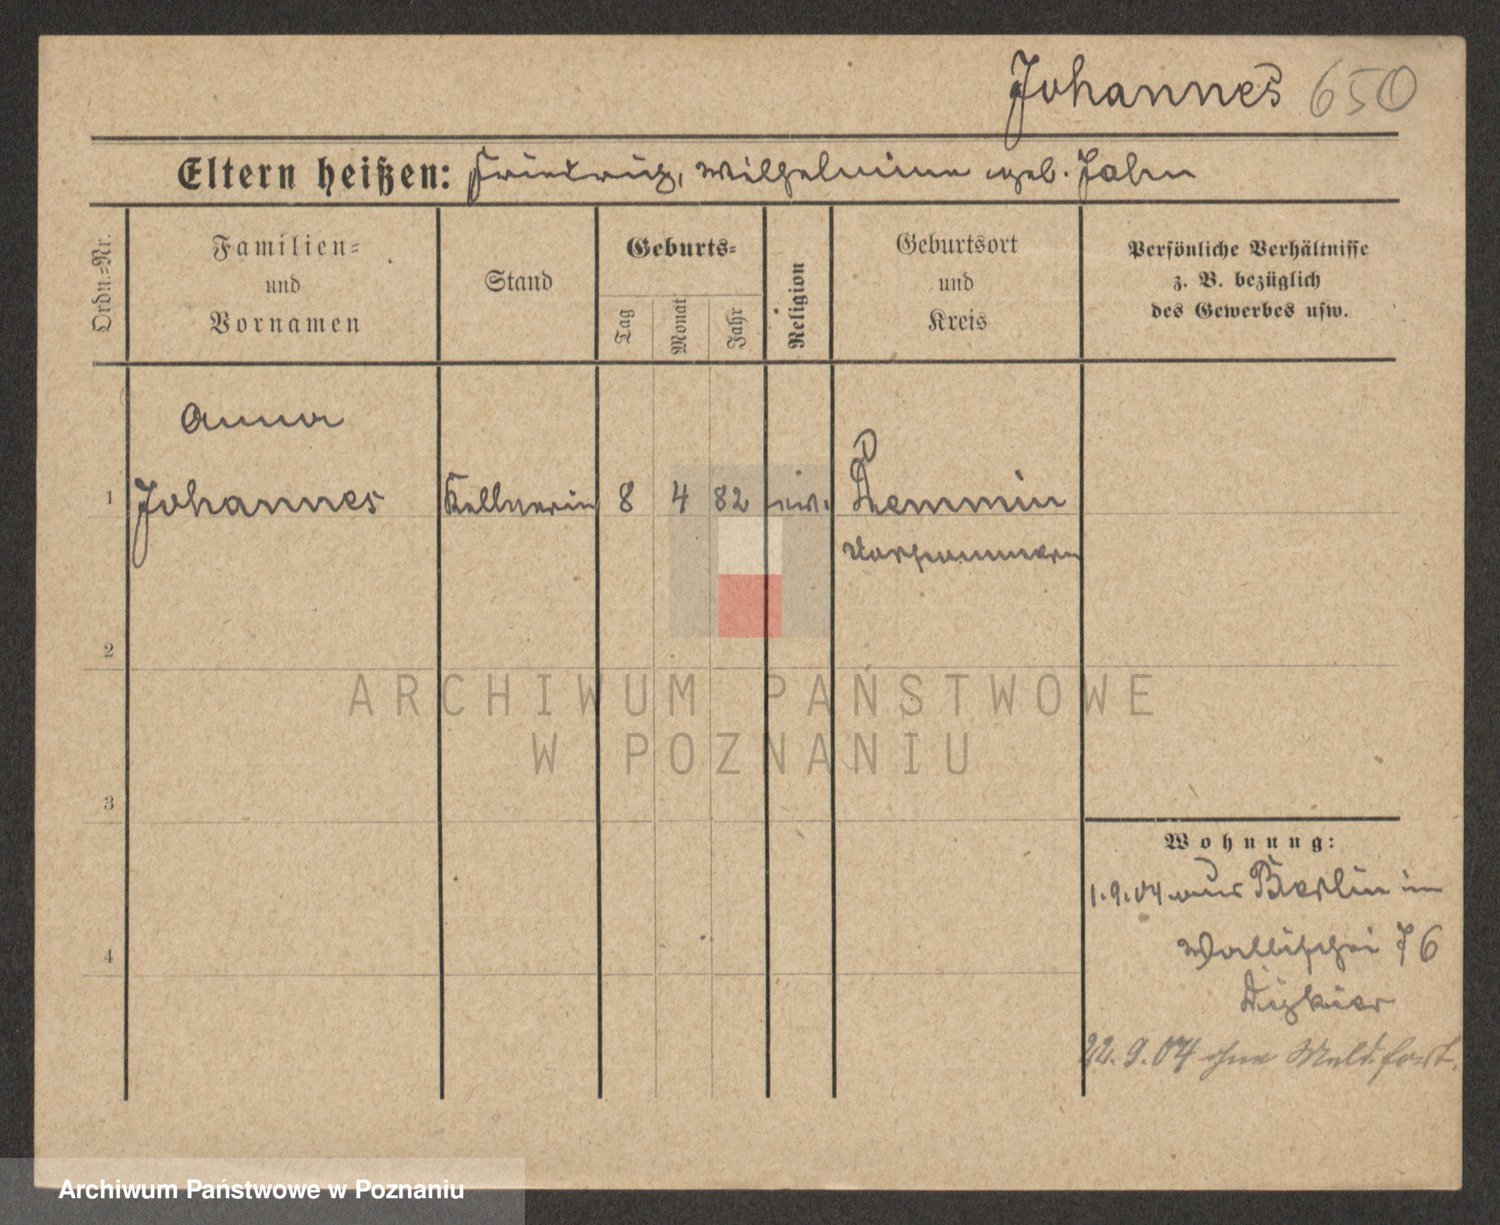 Johannes 650
Eltern heißen: Friedrich, Wilhelmine geb. Jahn
Ordn.=Nr.
Familien=
und
Vornamen
Stand
Geburts=
Tag
Monat
Jahr
Religion
Geburtsort
und
Kreis
Persönliche Verhältnisse
z. B. bezüglich
des Gewerbes usw.
Anna
1 Johannes Kellnerin 8 4 82 ev. Demmin
Vorpommern
2
3
4
Wohnung:
1.9.04 aus Berlin in
Wallischei 76
22.9.04 ohne Meld. fort.
ARCHIWUM PAŃSTWOWE
W POZNANIU
Archiwum Państwowe w Poznaniu